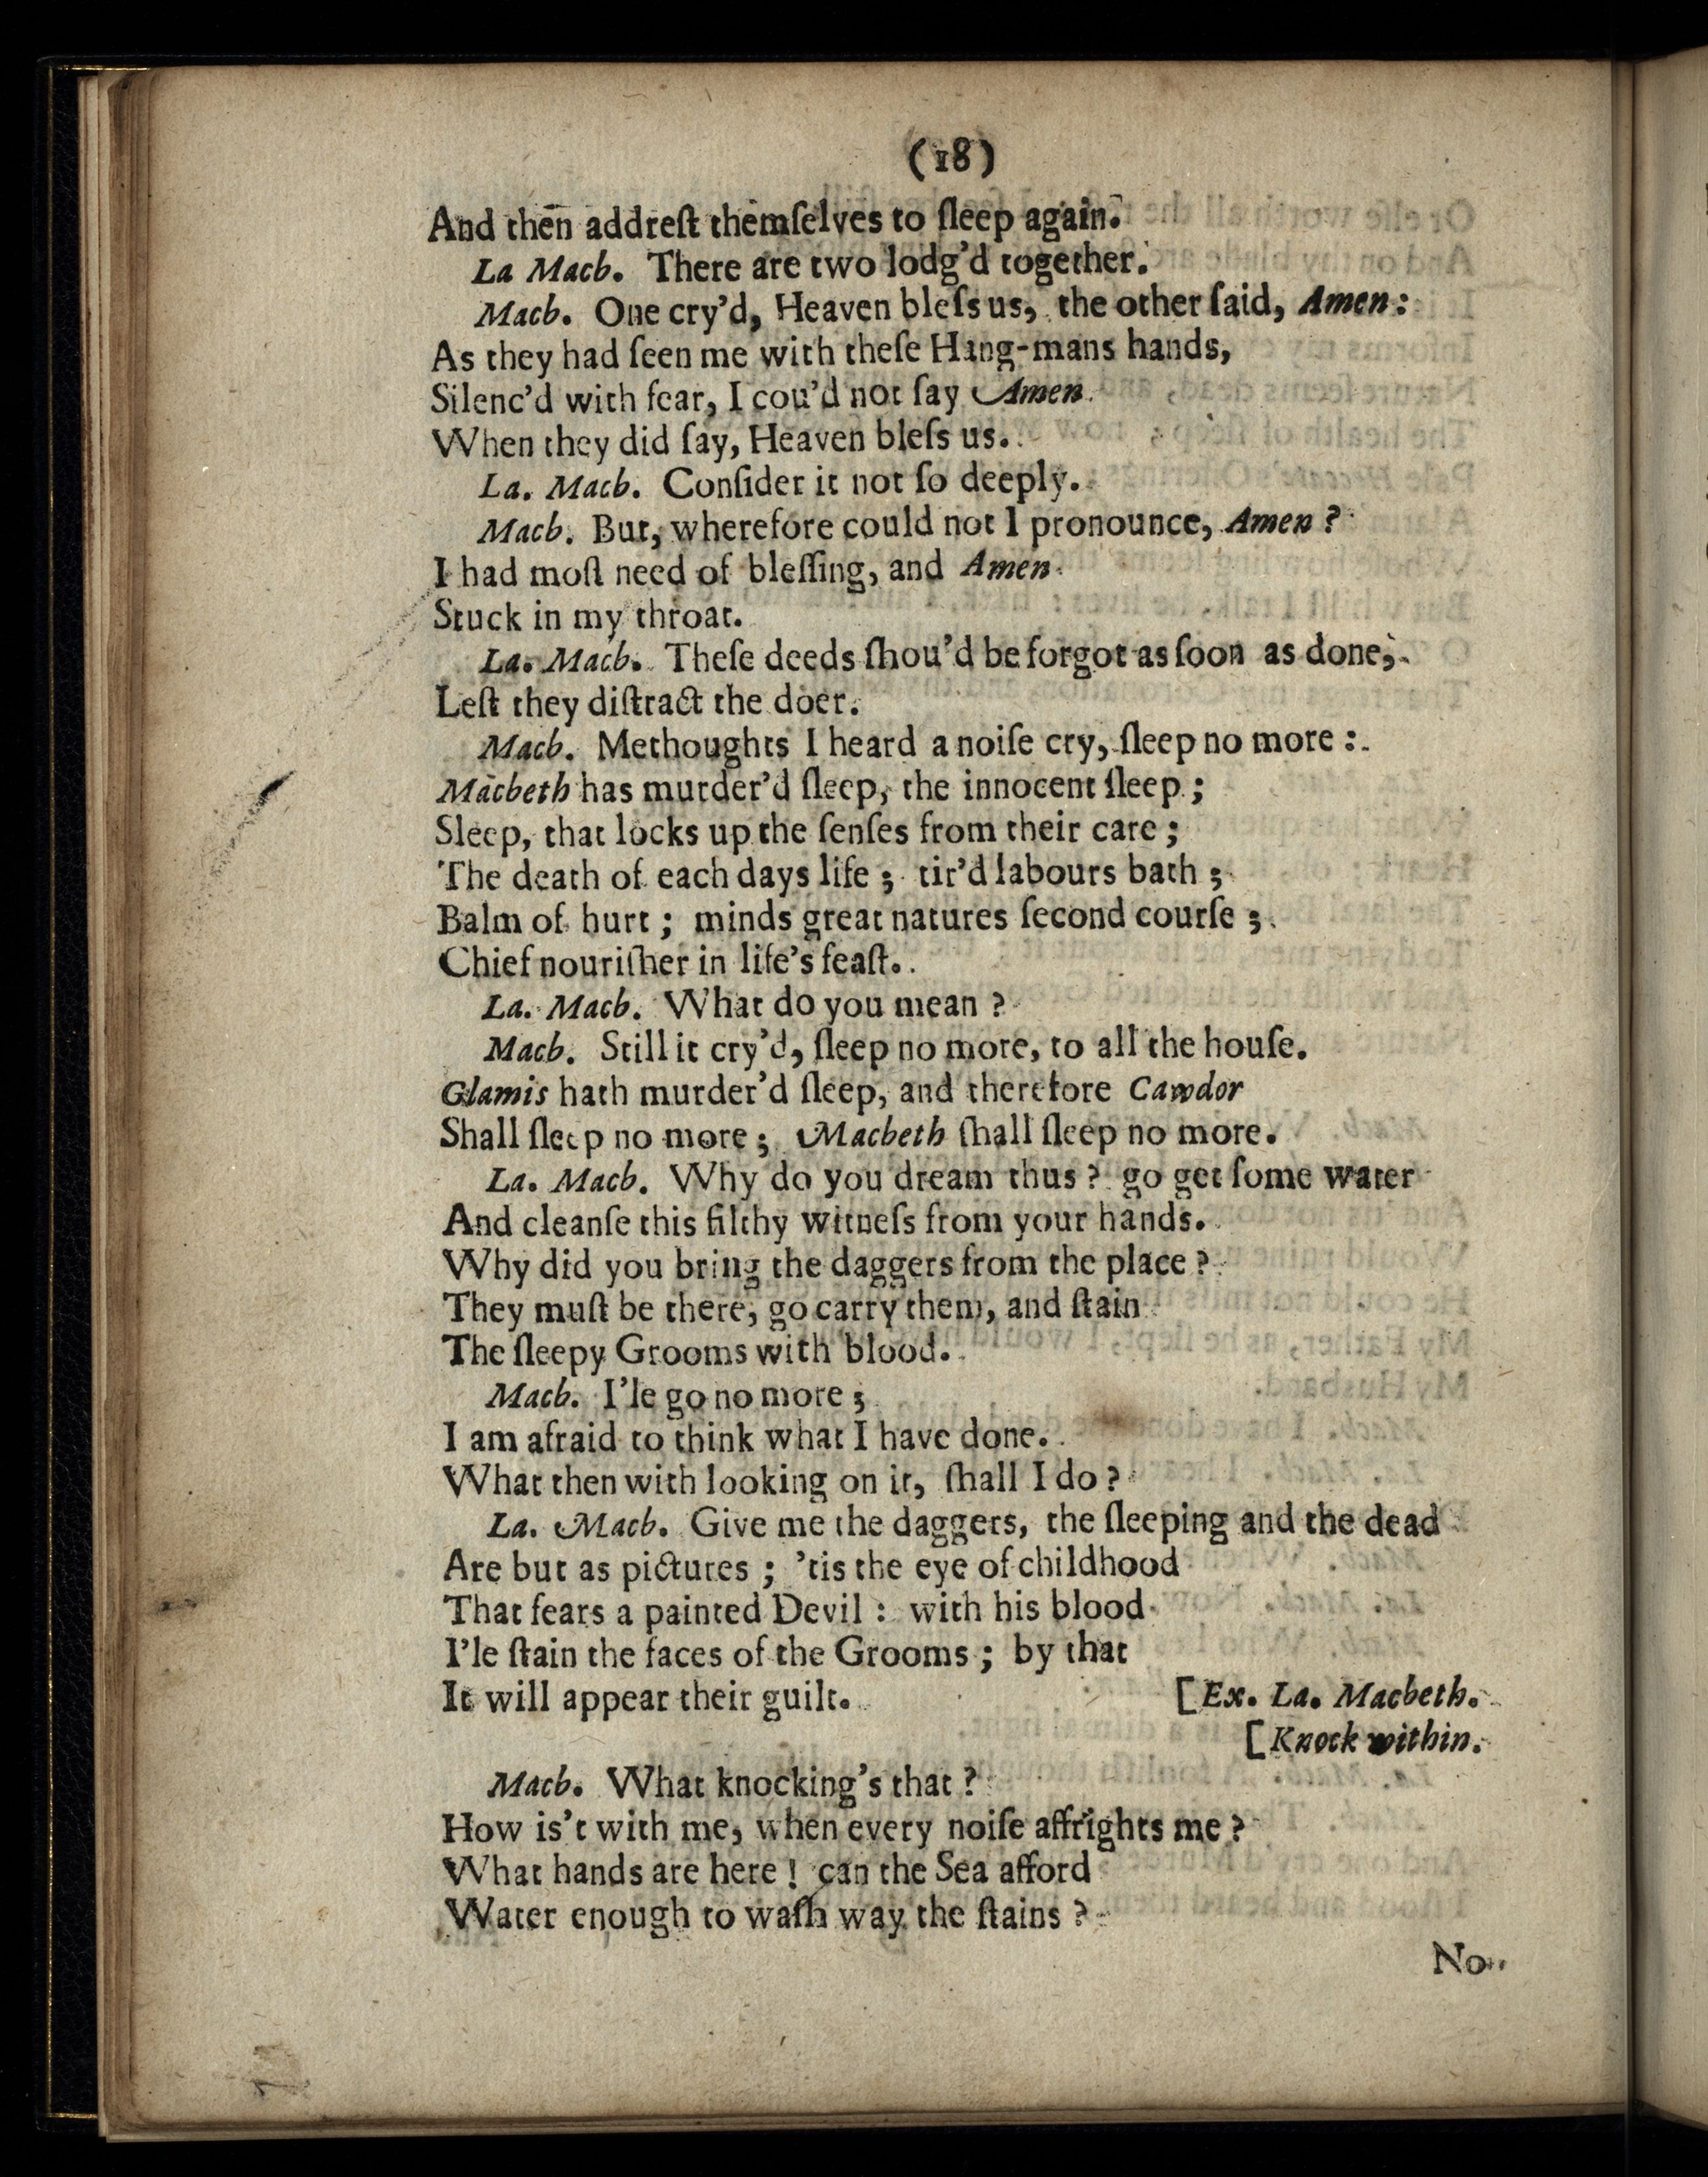 (18)
And then addreſt themſelves to ſleep again.
La Macb. There are two lodg'd together.
Macb. One cry'd, Heaven bleſs us, the other ſaid, Amen:
As they had ſeen me with theſe Hang-mans hands,
Silenc'd with fear, I cou'd not ſay Amen.
When they did ſay, Heaven bleſs us.
La. Macb. Conſider it not ſo deeply.
Macb. But, wherefore could not I pronounce, Amen?
I had moſt need of bleſſing, and Amen
Stuck in my throat.
La. Macb. Theſe deeds ſhou'd be forgot as ſoon as done,
Leſt they diſtract the doer.
Macb. Methoughts I heard a noiſe cry, ſleep no more:
Macbeth has murder'd ſleep, the innocent ſleep;
Sleep, that locks up the ſenſes from their care;
The death of each days life; tir'd labours bath;
Balm of hurt; minds great natures ſecond courſe;
Chief nouriſher in life's feaſt.
La. Macb. What do you mean?
Macb. Still it cry'd, ſleep no more, to all the houſe.
Glamis hath murder'd ſleep, and therefore Cawdor
Shall ſleep no more; Macbeth ſhall ſleep no more.
La. Macb. Why do you dream thus? go get ſome water
And cleanſe this filthy witneſs from your hands.
Why did you bring the daggers from the place?
They muſt be there, go carry them, and ſtain
The ſleepy Grooms with blood.
Macb. I'le go no more;
I am afraid to think what I have done.
What then with looking on it, ſhall I do?
La. Macb. Give me the daggers, the ſleeping and the dead
Are but as pictures; 'tis the eye of childhood
That fears a painted Devil: with his blood
I'le ſtain the faces of the Grooms; by that
It will appear their guilt. [Ex. La. Macbeth.
[Knock within.
Macb. What knocking's that?
How is't with me, when every noiſe affrights me?
What hands are here! can the Sea afford
Water enough to waſh way the ſtains?
No